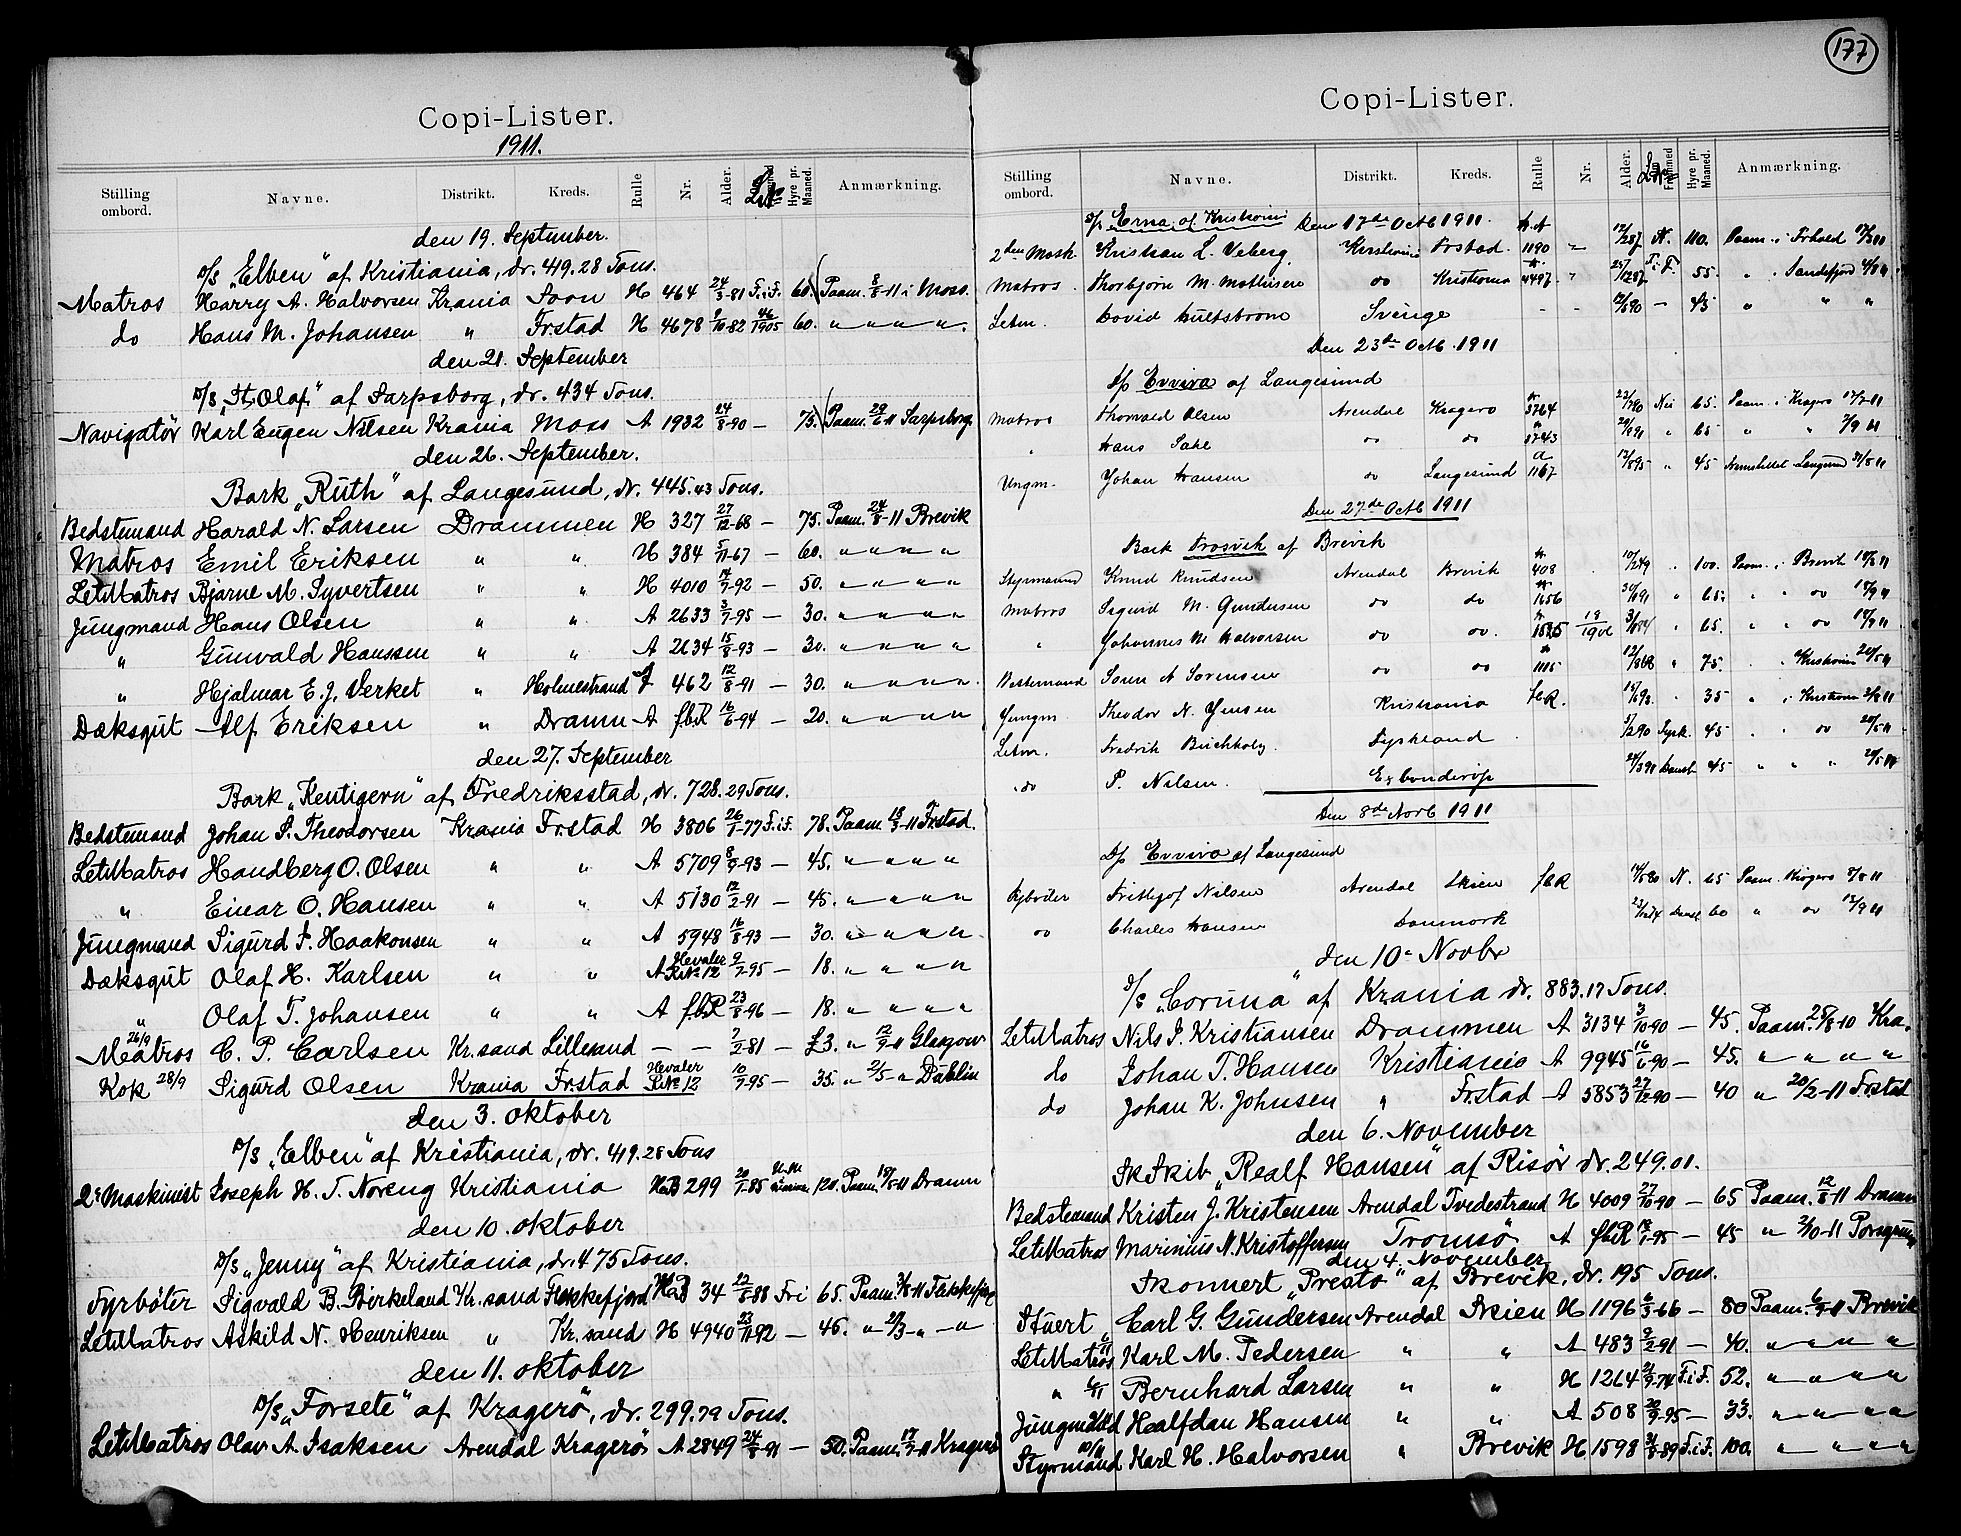 Copi-Lister.
1911.
Stilling ombord. Navne. Distrikt. Kreds. Rulle Nr. Alder. Hyre pr. Maaned. Anmærkning.
den 19. September.
D/S „Elben" af Kristiania, dr. 419.28 Tons.
Matros Harry A. Halvorsen Krania Soon H 464 24/3-81 F.i.F. 60. Paam. 8/8-11 i Moss.
do Hans M. Johansen " Frstad H 4678 9/10-82 46/1905 60. " " " "
den 21. September
D/S „St. Olaf" af Sarpsborg, dr. 434 Tons.
Navigatør Karl Eugen Nilsen Krania Moss A 1932 24/8-90 — 75. Paam. 29/6-11 Sarpsborg
den 26. September.
Bark „Ruth" af Langesund, dr. 445.43 Tons.
Bedstemand Harald N. Larsen Drammen H 327 27/12-68 — 75. Paam. 24/8-11 Brevik
Matros Emil Eriksen " " H 384 5/11-67 — 60. " " " "
LetMatros Bjarne M. Syvertsen " " H 4010 14/7-92 — 50. " " " "
Jungmand Hans Olsen " " A 2633 3/7-95 — 30. " " " "
" Gunvald Hanssen " " A 2634 15/8-93 — 30. " " " "
" Hjalmar E. J. Verket " Holmestrand A 462 12/8-91 — 30. " " " "
Dæksgut Alf Eriksen " Dramn A fbR 16/6-94 — 20. " " " "
den 27. September
Bark „Kentigern" af Fredriksstad, dr. 728.29 Tons.
Bedstemand Johan S. Theodorsen Krania Frstad H 3806 26/1-77 F.i.F. 78. Paam. 13/3-11 Frstad.
LetMatros Handberg O. Olsen " " A 5709 8/9-93 — 45. " " " "
" Einar O. Hansen " " A 5130 12/2-91 — 45. " " " "
Jungmand Sigurd F. Haakonsen " " A 5948 16/8-93 — 30. " " " "
Dæksgut Olaf H. Karlsen " " A Hevaler R.No 12 9/7-95 — 18. " " " "
" Olaf T. Johansen " " A fbR 23/8-96 — 18. " " " "
Matros 26/9 C. P. Carlsen Kr.sand Lillesand — — 7/2-81 — £3. " 12/9-11 Glasgow
Kok 28/9 Sigurd Olsen Krania Frstad Hevaler R.No 12 10/7-95 — 35. " 2/5-" Dublin
den 3. Oktober
D/S „Elben" af Kristiania, dr. 419.28 Tons
2. Maskinist Joseph H. T. Noreng Kristiania H.B 299 20/1-85 120. Paam. 18/8-11 Dramn
den 10. Oktober
D/S „Jenny" af Kristiania, dr. 475 Tons.
Fyrbøter Sigvald B. Birkeland Kr.sand Flekkefjord 34 22/8-88 Fri 65. Paam.
LetMatros Askild N. Henriksen " Kr.sand H 4940 23/11-92 — 46. " 2/3-" — "
den 11. Oktober
D/S „Forsete" af Kragerø, dr. 299.79 Tons.
LetMatros Olav A. Isaksen Arendal Kragerø A 2849 24/8-91 — 50. Paam. 17/7-11 Kragerø
177
Copi-Lister.
Stilling ombord. Navne. Distrikt. Kreds. Rulle Nr. Alder. Hyre pr. Maaned. Anmærkning.
D/S Erna af Kristiania Den 17de Octb 1911.
2den Mask Kristian L. Veberg Kristiania Frstad 1190 — 12/287 N. 110. Paam. i Frhald
Matros Thorbjørn M. Mathisen do Kristiania 4497 " F.i.F. 55. " Sandefjord
Letm. Sverige — — 45 " " "
Den 23de Octb. 1911
D/S Evviva af Langesund
Matros Thorvald Olsen Arendal Kragerø 3764 Nei 65. Paam. i Kragerø
" Hans Dahl do do 1743 " 65 " "
Ungm. Johan Hansen do Langesund 1167 " 45
Den 27de Octb 1911
Bark Frosvik af Brevik
Styrmand Knud Knudsen Arendal Brevik 408 " 100. Paam. i Brevik
Matros Sigurd M. Gundersen do do 1656 " 65. " " do
" Johannes M. Halvorsen do do. 1585 19/1906 " 65. " " do
Bestemand Søren A Sørensen do do 1115 " 75. i Kristiania
Jungm. Theodor N. Jensen Kristiania fbR. 35 " i Kristiania
Letm. Fredrik Buchholz. Tyskland Tysk. 45 " " do
do P. Nilsen. Dansk 45 " " "
Den 8de Novb 1911
D/S Evviva af Langesund
Fyrbøder Frithjof Nilsen Arendal Skien fbR N. 65 Paam. Kragerø
do Charles Hansen Danmark Dansk 60 " do
den 10. Novbr
D/S „Coruna" af Krania dr. 883.17 Tons.
LetMatros Nils J. Kristiansen Drammen A 3134 3/10-90 — 45. Paam. Kra.
do Johan T. Hansen Kristiania A 9945 16/6-90 — 45. " " " "
do Johan K. Johnsen " Frstad A 5853 27/12-90 — 40 " 20/2-11 Frstad
den 6. November
Sk Skib „Realf Hansen" af Risør dr. 249.01.
Bedstemand Kristen J. Kristensen Arendal Tvedestrand H 4009 27/10-90 — 65 Paam. 12/8-11 Dramn
LetMatros Marinius N. Kristoffersen Tromsø A fbR — 45 " Porsgrund
den 4. November
Skonnert „Presto" af Brevik, dr. 195 Tons.
Stuert Carl G. Gundersen Arendal Skien H 1196 6/3-66 — 80 Paam. 6/9-11 Brevik
LetMatros Karl M. Pedersen " " A 483 9/2-91 — 40. " " " "
" Bernhard Larsen " " H 1264 21/9-74 F.i.F. 52. " " " "
Jungmand Halfdan Hansen " " A 508 20/9-95 — 33. " " " "
Styrmand 10/11 Karl H. Halvorsen " Brevik H 1598 31/8-89 F.i.F. 100. " " " "